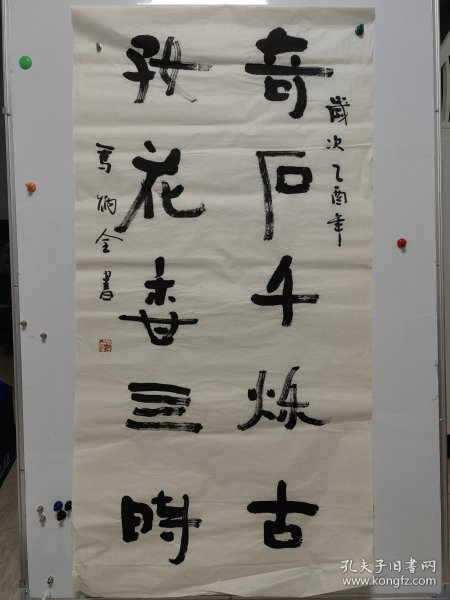 歲次乙酉年
奇石千秌古
好花香三時
馬炳全書
孔夫子旧书网
www.kongfz.com